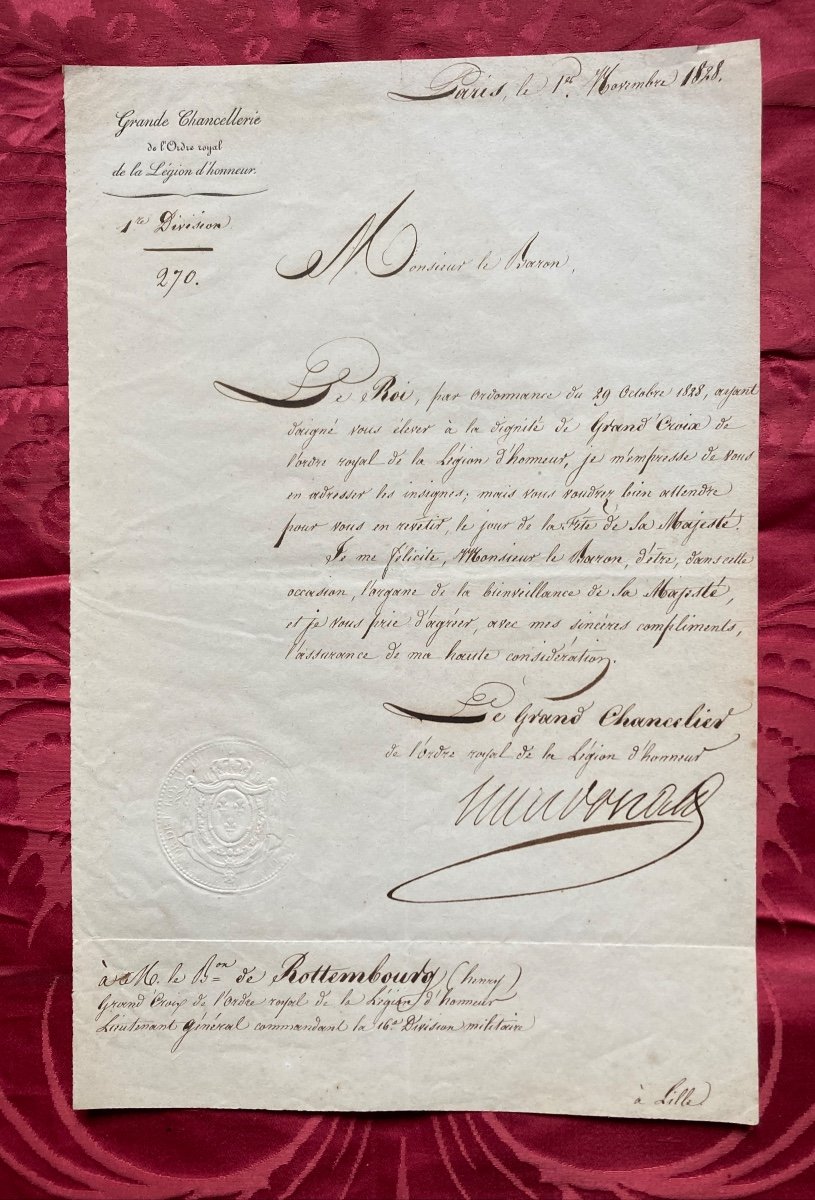 Paris, le 1er. Novembre 1828.
Grande Chancellerie
de l'Ordre royal
de la Légion d'honneur.
1re Division
270.
Monsieur le Baron,
Le Roi, par ordonnance du 29 Octobre 1828, ayant
daigné vous élever à la dignité de Grand'Croix de
l'ordre royal de la Légion d'honneur, je m'empresse de vous
en adresser les insignes; mais vous voudrez bien attendre
pour vous en revêtir, le jour de la Fête de Sa Majesté.
Je me félicite, Monsieur le Baron, d'être, dans cette
occasion, l'organe de la bienveillance de Sa Majesté,
et je vous prie d'agréer, avec mes sincères compliments,
l'assurance de ma haute considération.
Le Grand Chancelier
de l'Ordre royal de la Légion d'honneur
Macdonald
à M. le Bon de Rottembourg (henry)
Grand'Croix de l'Ordre royal de la Légion d'honneur
Lieutenant général commandant la 16e Division militaire
à Lille